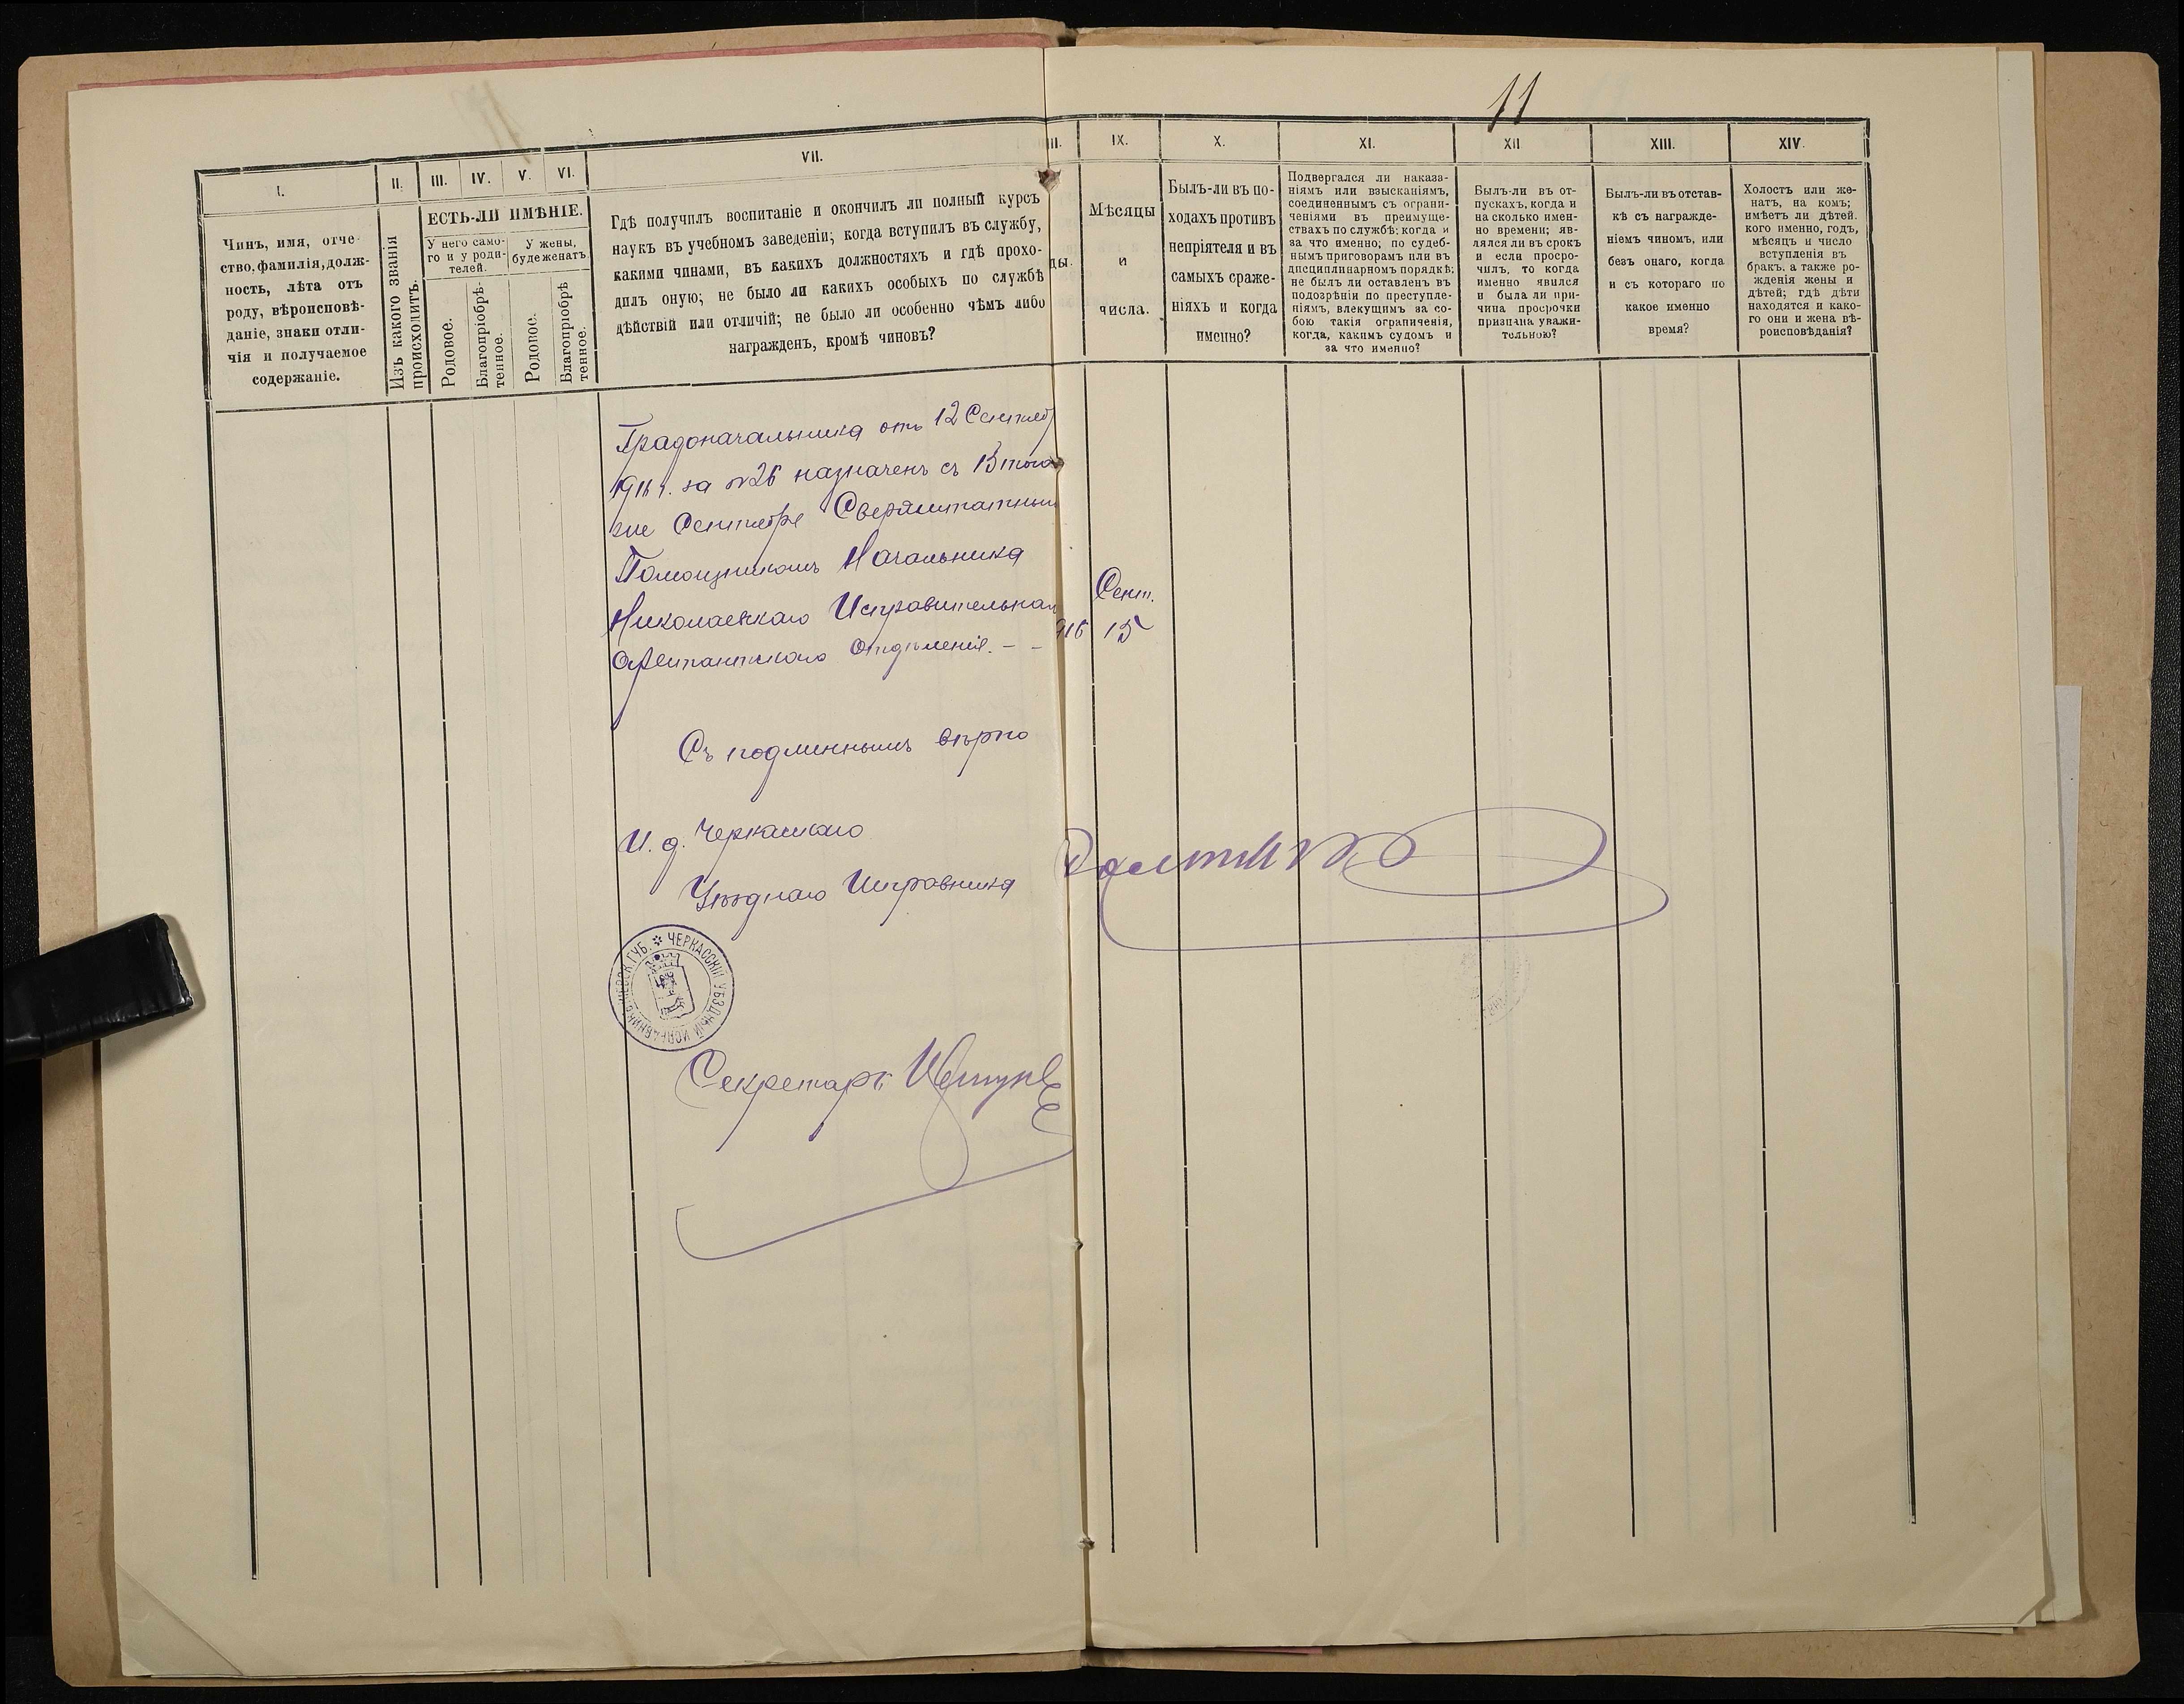 11
I.
II.
III.
IV.
V.
VI.
VII.
III.
IX.
X.
XI.
XII
XIII.
XIV.
Чинъ, имя, отче-
ство, фамилія, долж-
ность, лѣта отъ
роду, вѣроисповѣ-
даніе, знаки отли-
чія и получаемое
содержаніе.
Изъ какого званія
происходитъ.
ЕСТЬ-ЛИ ИМѢНІЕ.
У него само-
го и у роди-
телей.
У жены,
буде женатъ.
Родовое.
Благопріобрѣ-
тенное.
Родовое.
Благопріобрѣ
тенное.
Гдѣ получилъ воспитаніе и окончилъ ли полный курсъ
наукъ въ учебномъ заведеніи; когда вступилъ въ службу,
какими чинами, въ какихъ должностяхъ и гдѣ прохо-
дилъ оную; не было ли какихъ особыхъ по службѣ
дѣйствій или отличій; не было ли особенно чѣмъ либо
награжденъ, кромѣ чиновъ?
ды.
Мѣсяцы
и
числа.
Былъ-ли въ по-
ходахъ противъ
непріятеля и въ
самыхъ сраже-
ніяхъ и когда
именно?
Подвергался ли наказа-
ніямъ или взысканіямъ,
соединеннымъ съ ограни-
ченіями въ преимуще-
ствахъ по службѣ; когда и
за что именно; по судеб-
нымъ приговорамъ или въ
дисциплинарномъ порядкѣ;
не былъ ли оставленъ въ
подозрѣніи по преступле-
ніямъ, влекущимъ за со-
бою такія ограниченія,
когда, какимъ судомъ и
за что именно?
Былъ-ли въ от-
пускахъ, когда и
на сколько имен-
но времени; яв-
лялся ли въ срокъ
и если просро-
чилъ, то когда
именно явился
и была ли при-
чина просрочки
признана уважи-
тельною?
Былъ-ли въ отстав-
кѣ съ награжде-
ніемъ чиномъ, или
безъ онаго, когда
и съ котораго по
какое именно
время?
Холостъ или же-
натъ, на комъ;
имѣетъ ли дѣтей.
кого именно, годъ,
мѣсяцъ и число
вступленія въ
бракъ. а также ро-
жденія жены и
дѣтей; гдѣ дѣти
находятся и како-
го они и жена вѣ-
роисповѣданія?
Градоначальника отъ 12 Сентяб
1916 г. за № 26 назначенъ съ 15 того
же Сентября Сверхштатным
Помощникомъ Начальника
Николаевскаго Исправительнаг
Арестантскаго Отдѣленія. - -
Сент.
916 15
Съ подлиннымъ вѣрно
И. д. Черкасскаго
Уѣзднаго Исправника
ЧЕРКАССКІЙ УѢЗДНЫЙ ИСПРАВНИКЪ КІЕВСК. ГУБ.
Секретарь